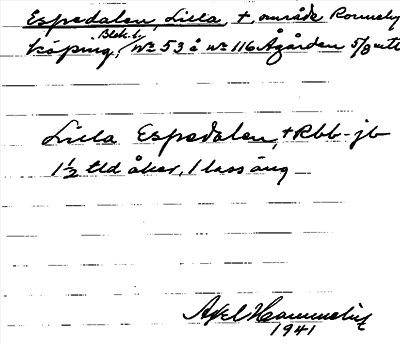 Espedalen, Lilla, + område Ronneby
Blek. l.
köping, No 53 å No 116 Ågården 5/8 mtl
Lilla Espedalen, + Rbb-jb
1½ tld åker, 1 lass äng
Axel Hammelin
1941